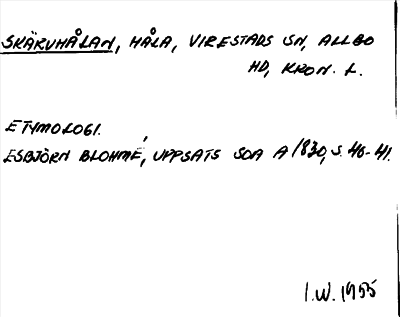 SKÄRVHÅLAN, HÅLA, VIRESTADS SN, ALLBO
HD, KRON. L.
ETYMOLOGI.
ESBJÖRN BLOHMÉ, UPPSATS SOA A 1830, S. 40-41.
I.W. 1955